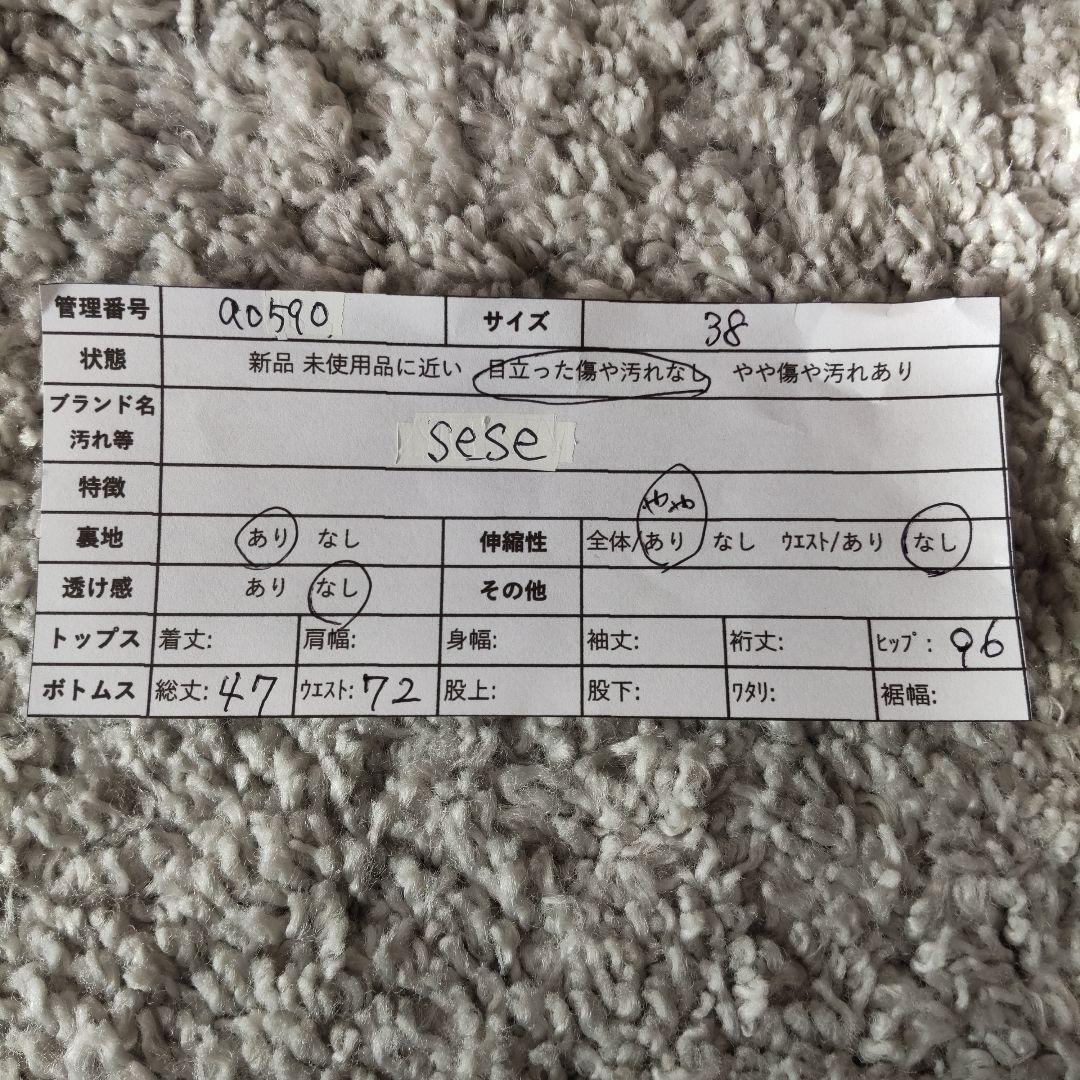 管理番号 a0590 サイズ 38
状態 新品 未使用品に近い 目立った傷や汚れなし やや傷や汚れあり
ブランド名
汚れ等 sese
特徴
やや
裏地 あり なし 伸縮性 全体/あり なし ウエスト/あり なし
透け感 あり なし その他
トップス 着丈: 肩幅: 身幅: 袖丈: 裄丈: ヒップ: 96
ボトムス 総丈: 47 ウエスト: 72 股上: 股下: ワタリ: 裾幅: